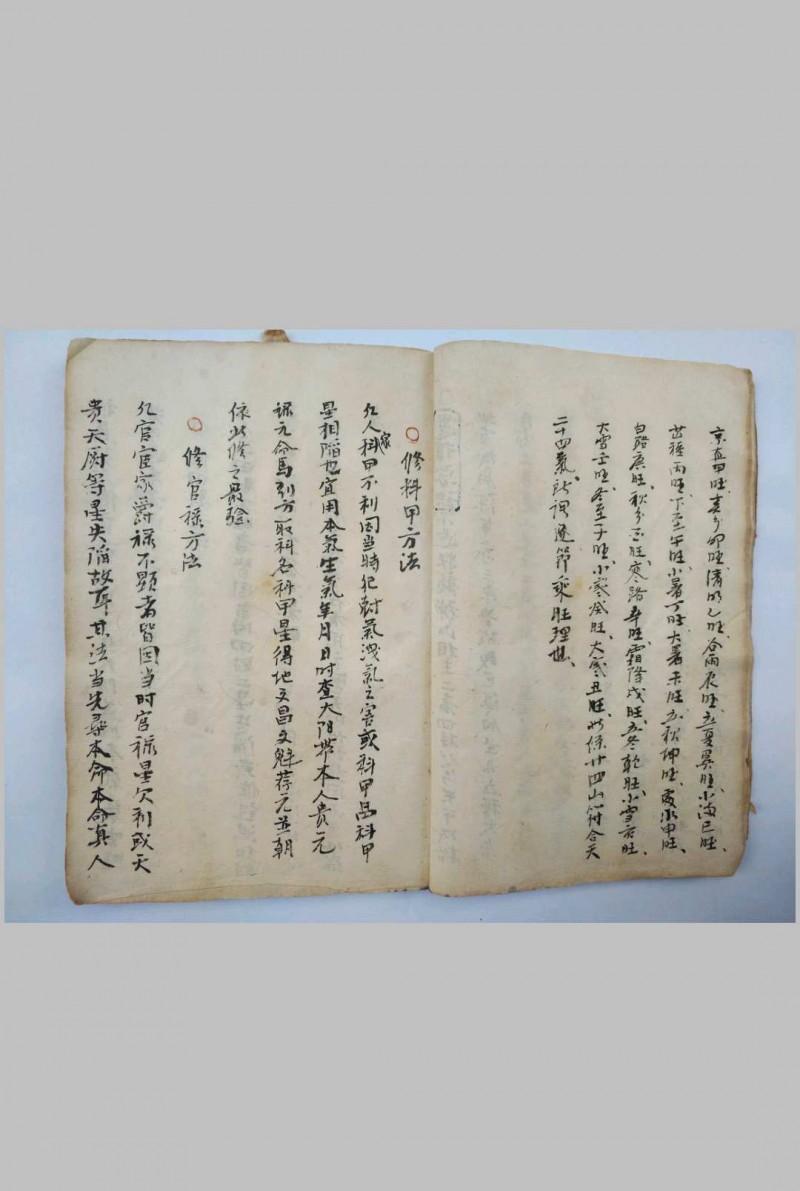 京直甲旺、春分卯旺、清明乙旺、谷雨辰旺、立夏巽旺、小满巳旺、
芒種丙旺、下至午旺、小暑丁旺、大暑未旺、立秋坤旺、处暑申旺、
白路庚旺、秋分酉旺、寒路辛旺、霜降戌旺、立冬乾旺、小雪亥旺、
大雪壬旺、冬至子旺、小寒癸旺、大寒丑旺、此係廿四山符合天
二十四氣、訣詞逢節乘旺理也、
○修科甲方法
凡人家科甲不利因当時犯射氣洩氣之害或科甲品科甲
星相陷也宜用本氣生氣年月日时查太阳帶本人贵元
禄元命馬到方取科名科甲星得地文昌文魁荐元並朝
依此修之最验
○修官禄方法
凡官宦家爵禄不顯者皆因当时官禄星欠利或天
贵天厨等星失陷故耳其法当先尋本命本命真人